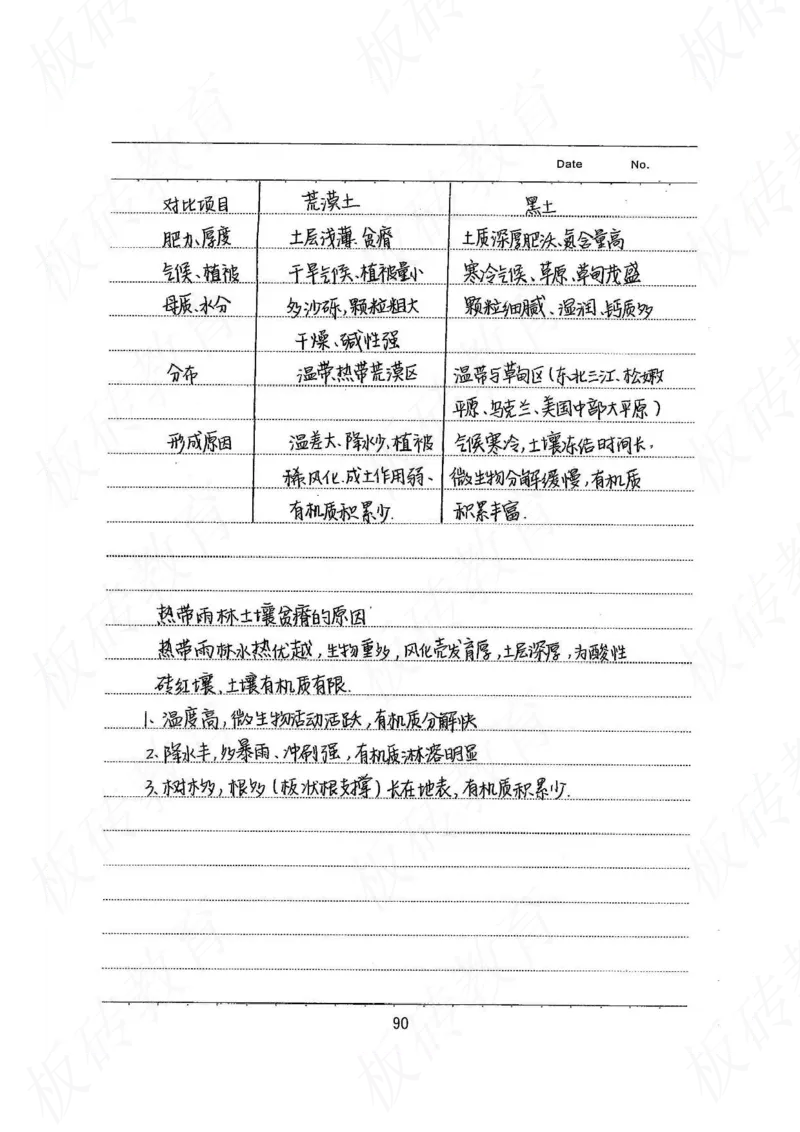 Date No.
对比项目 荒漠土 黑土
肥力、厚度 土层浅薄、贫瘠 土质深厚肥沃、氮含量高
气候、植被 干旱气候、植被量小 寒冷气候、草原、草甸茂盛
母质、水分 多沙砾,颗粒粗大 颗粒细腻、湿润、钙质多
干燥、碱性强
分布 温带、热带荒漠区 温带与草甸区(东北三江、松嫩
平原、乌克兰、美国中部大平原)
形成原因 温差大、降水少、植被 气候寒冷,土壤冻结时间长,
稀、风化、成土作用弱、 微生物分解缓慢,有机质
有机质积累少. 积累丰富.
热带雨林土壤贫瘠的原因
热带雨林水热优越,生物量多,风化壳发育厚,土层深厚,为酸性
砖红壤、土壤有机质有限.
1、温度高,微生物活动活跃,有机质分解快
2、降水丰,多暴雨、冲刷强,有机质淋溶明显
3、树木多,根多(板状根支撑)长在地表,有机质积累少.
90
板砖教育